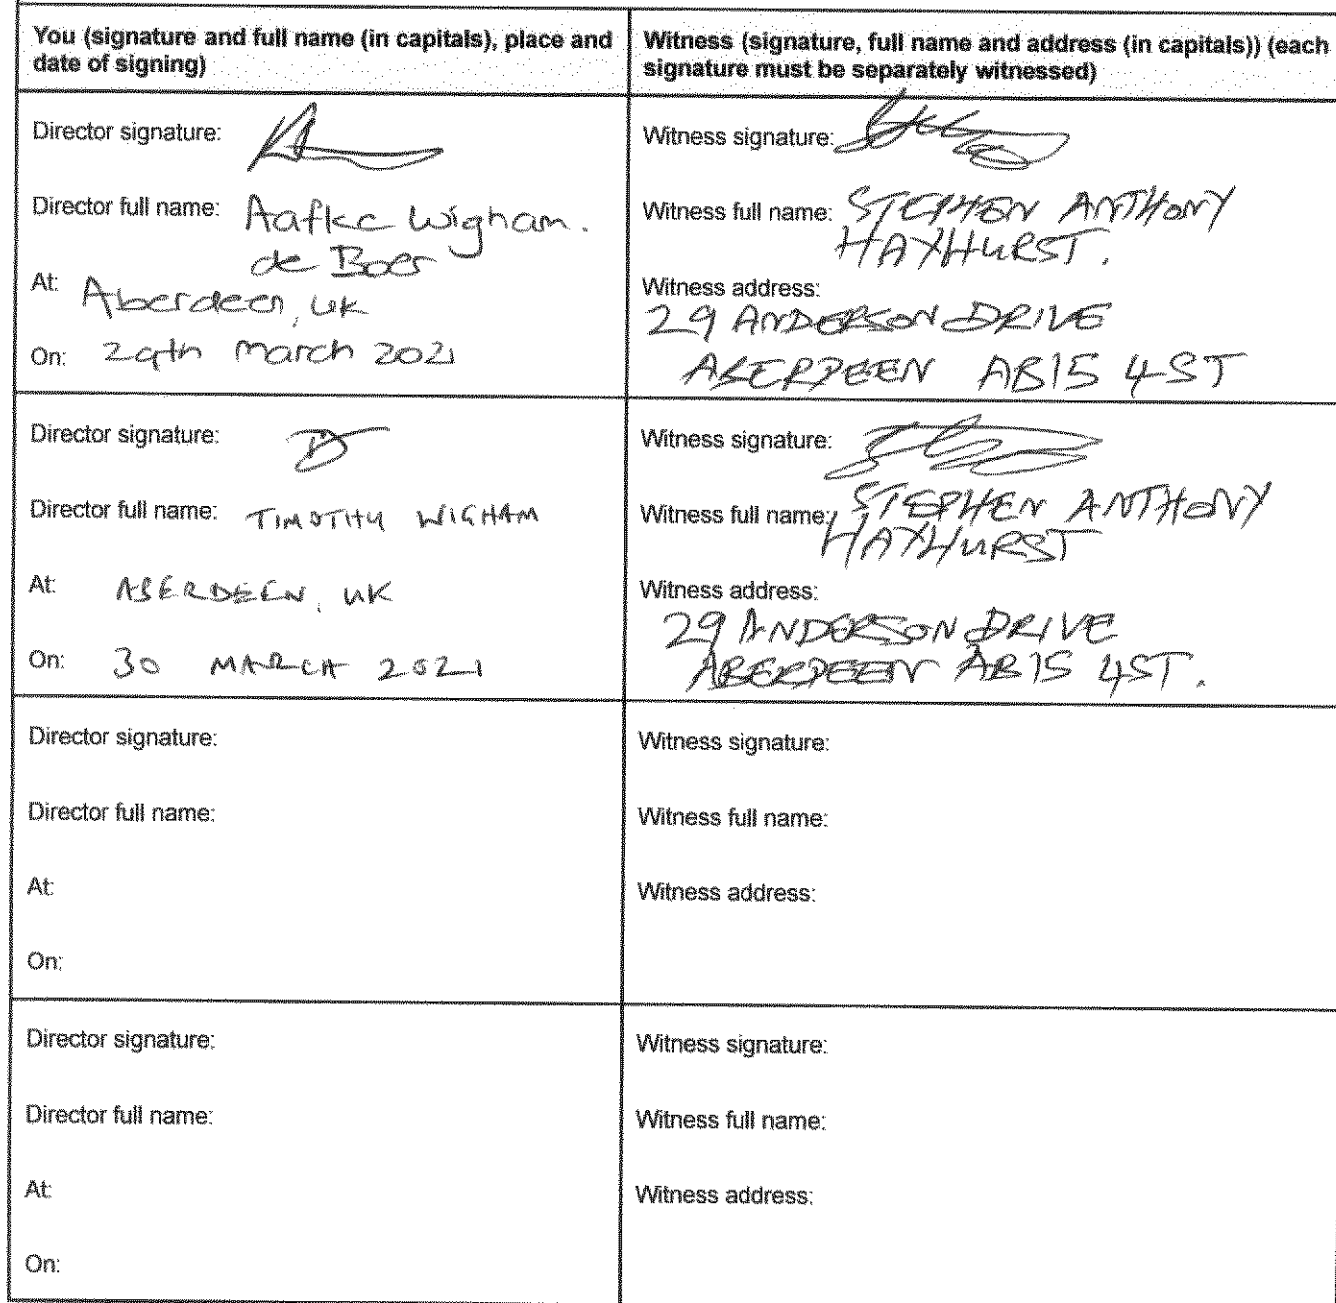 You (signature and full name (in capitals), place and date of signing)
Witness (signature, full name and address (in capitals)) (each signature must be separately witnessed)
Director signature:
Director full name: Aafke Wigham.
de Boer
At: Aberdeen, UK
On: 29th March 2021
Witness signature:
Witness full name: STEPHEN ANTHONY
HAYHURST.
Witness address:
29 ANDERSON DRIVE
ABERDEEN AB15 4ST
Director signature:
Director full name: TIMOTHY WIGHAM
At: ABERDEEN, UK
On: 30 MARCH 2021
Witness signature:
Witness full name: STEPHEN ANTHONY
HAYHURST
Witness address:
29 ANDERSON DRIVE
ABERDEEN AB15 4ST.
Director signature:
Director full name:
At:
On:
Witness signature:
Witness full name:
Witness address:
Director signature:
Director full name:
At:
On:
Witness signature:
Witness full name:
Witness address: